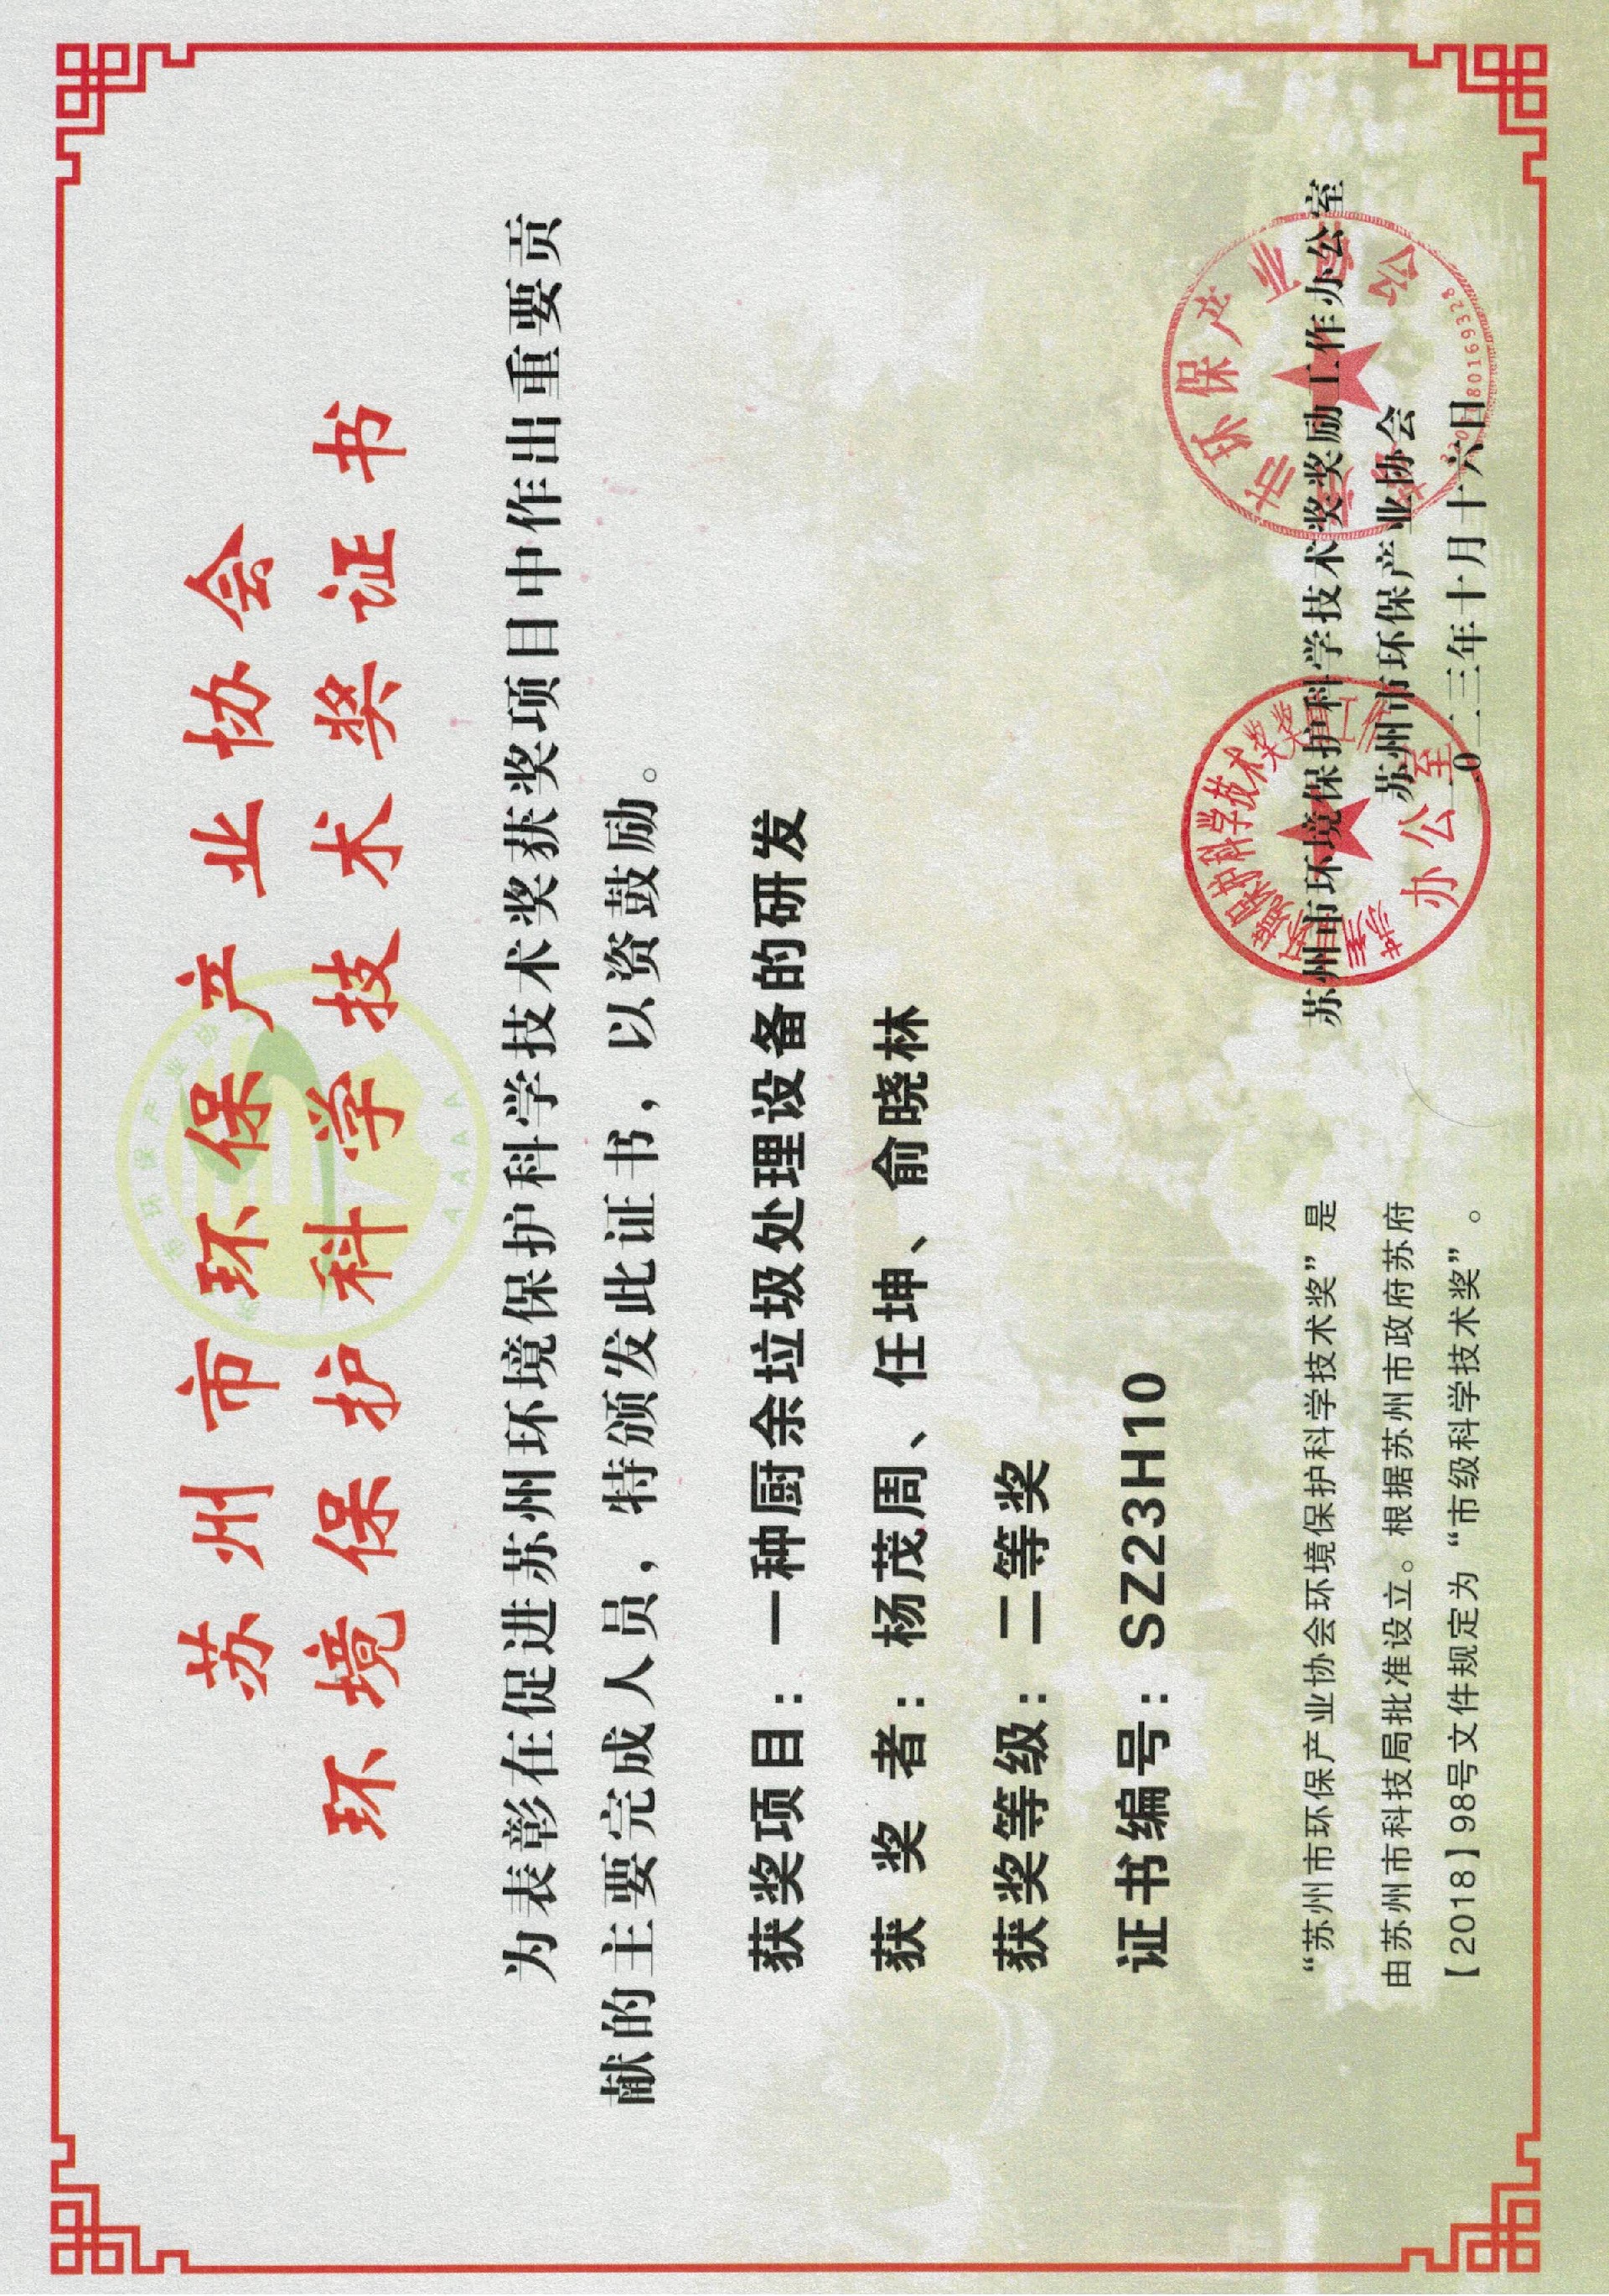 苏州市环保产业协会
环境保护科学技术奖证书
为表彰在促进苏州环境保护科学技术奖获奖项目中作出重要贡
献的主要完成人员，特颁发此证书，以资鼓励。
获奖项目：一种厨余垃圾处理设备的研发
获 奖 者：杨茂周、任坤、俞晓林
获奖等级：二等奖
证书编号：SZ23H10
“苏州市环保产业协会环境保护科学技术奖”是
由苏州市科技局批准设立。根据苏州市政府苏府
【2018】98号文件规定为“市级科学技术奖”。
苏州市环境保护科学技术奖奖励工作办公室
苏州市环保产业协会
二0二三年十月十六日
办公室